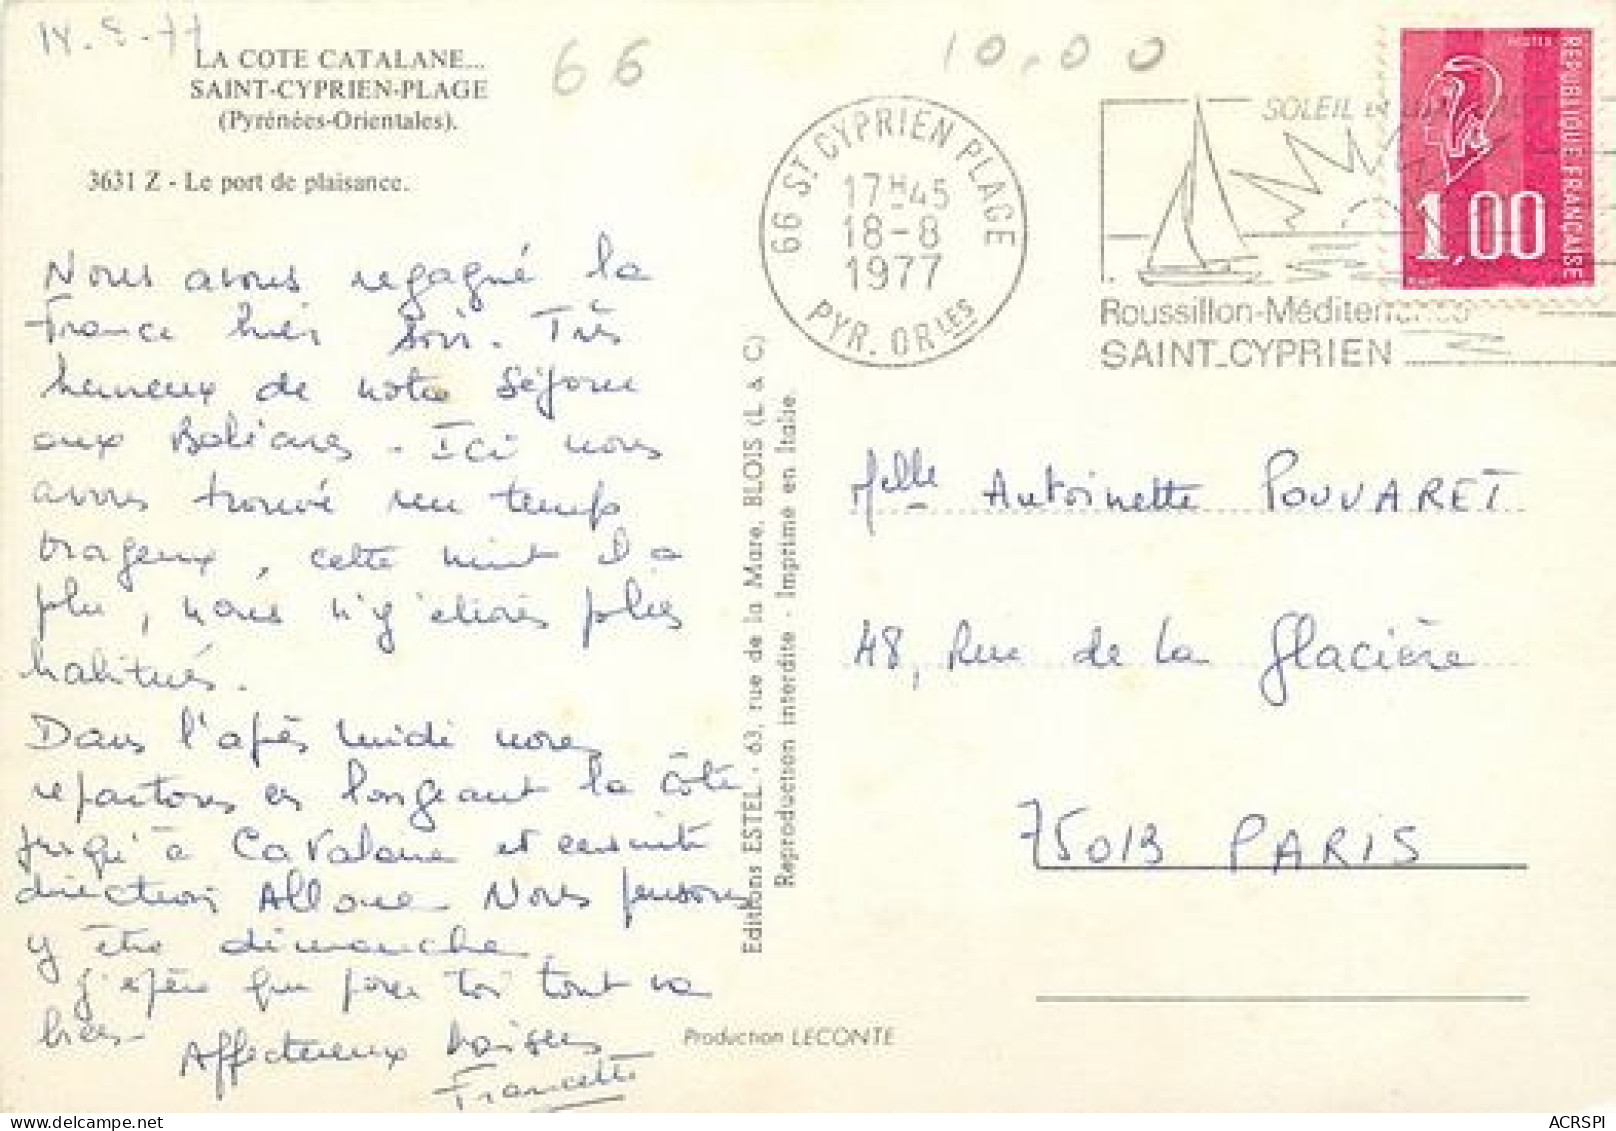 LA COTE CATALANE...
SAINT-CYPRIEN-PLAGE
(Pyrénées-Orientales).
3631 Z - Le port de plaisance.
66
10,00
66 ST CYPRIEN PLAGE
17H45
18-8
1977
PYR. ORLES
SOLEIL
Roussillon-Méditerranée
SAINT-CYPRIEN
REPUBLIQUE FRANÇAISE
1,00
Nous avons regagné la
France hier soir. Très
heureux de notre séjour
aux Baléares - Ici nous
avons trouvé un temps
orageux, cette nuit il a
plu, nous n'y étions plus
habitués.
Dans l'après midi nous
repartons en longeant la côte
jusqu'à Cavalaire et ensuite
direction Nous pensons
y être dimanche
j'espère que pour toi tout va
bien-
Affectueux baisers
Francette
Editions ESTEL - 63, rue de la Mare, BLOIS (L. & C)
Reproduction interdite - Imprimé en Italie.
Melle Antoinette POUVARET
48, Rue de la Glacière
75013 PARIS
Production LECONTE
ACRSPI